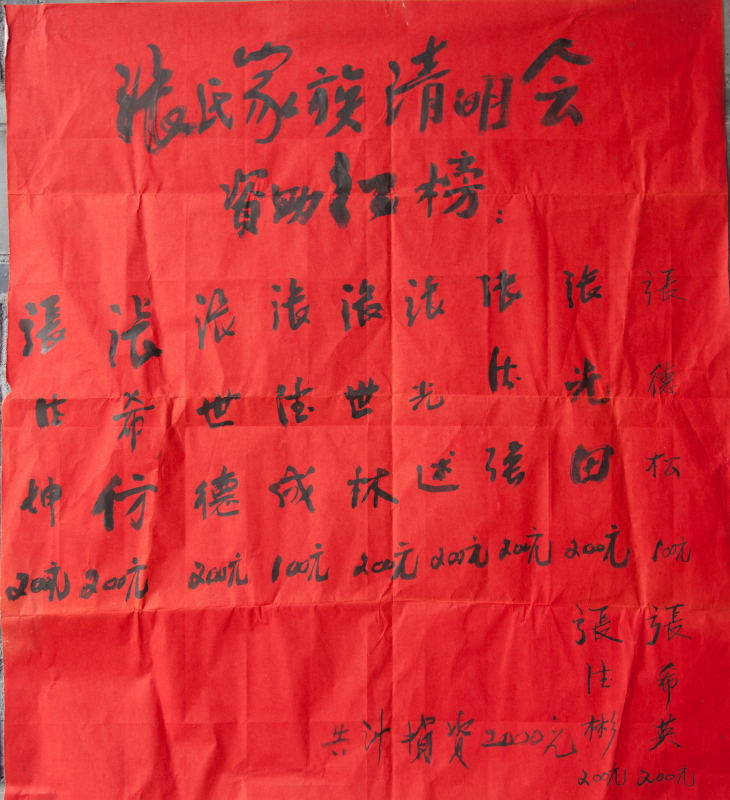 張氏家族清明会
資助红榜：
張德松 100元
张光田 200元
张
200元
张光述 200元
张世林 200元
张德成 100元
张世德 200元
张希仿 200元
張仕坤 200元
張希英 200元
張仕彬 200元
共计 資2000元